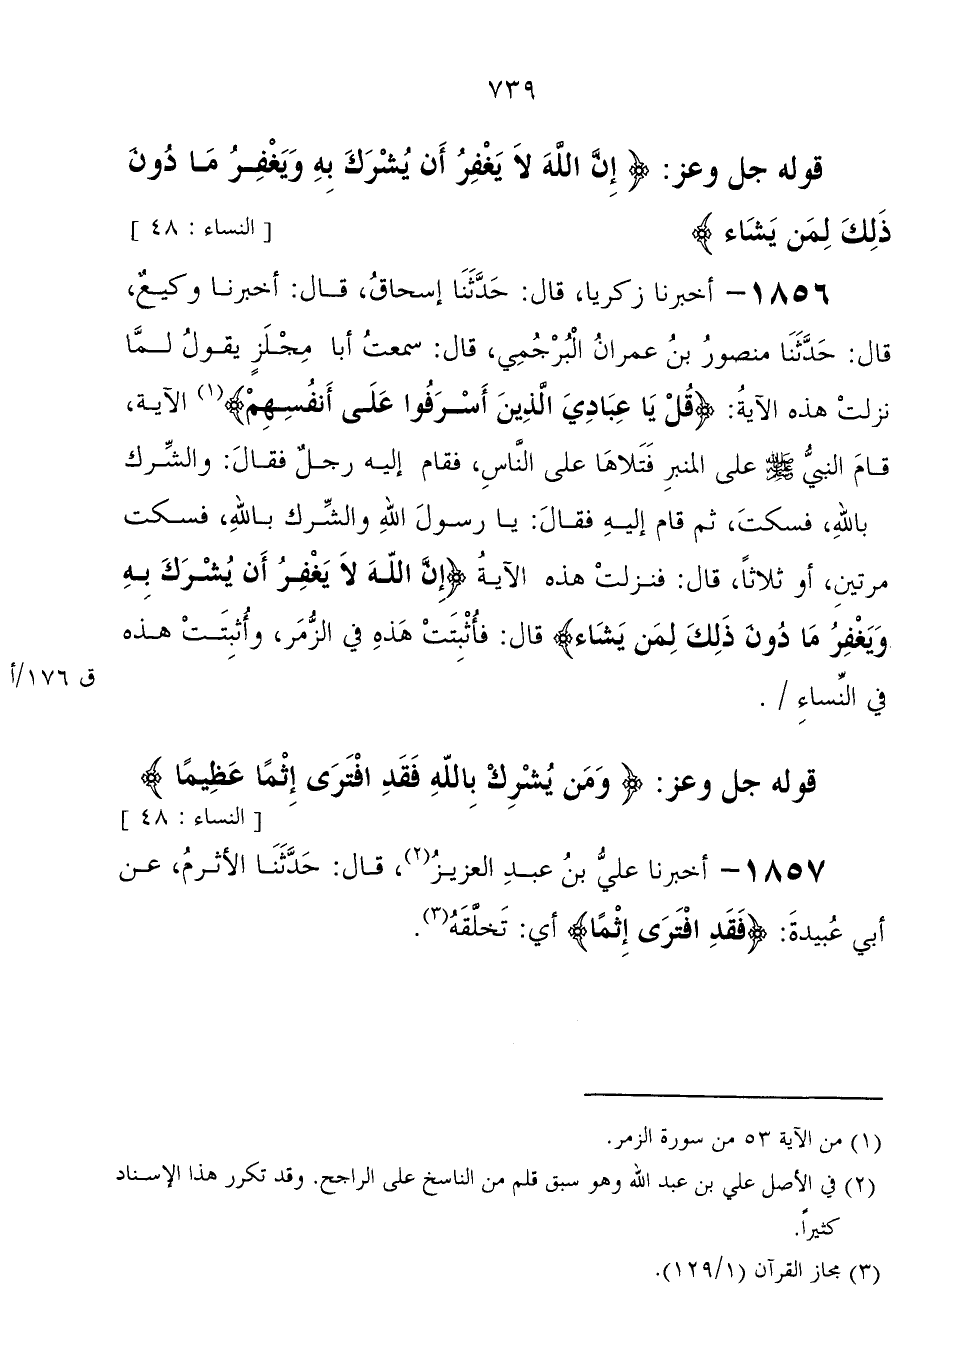 ٧٣٩
قوله جل وعز: ﴿ إِنَّ اللَّهَ لاَ يَغْفِرُ أَن يُشْرَكَ بِهِ وَيَغْفِرُ مَا دُونَ
ذَلِكَ لِمَن يَشَاء ﴾ [ النساء : ٤٨ ]
١٨٥٦– أخبرنا زكريا، قال: حَدَّثَنَا إسحاقُ، قال: أخبرنا وكيعٌ،
قال: حَدَّثَنَا منصورُ بنُ عمرانُ الْبُرْجُمِي، قال: سمعتُ أبا مِجْلَزٍ يقولُ لمَّا
نزلتْ هذه الآيةُ: ﴿قُلْ يَا عِبَادِيَ الَّذِينَ أَسْرَفُوا عَلَى أَنفُسِهِمْ﴾(١) الآية،
قامَ النبيُّ ﷺ على المنبرِ فَتَلاهَا على النَّاسِ، فقام إليه رجلٌ فقالَ: والشِّرك
باللهِ، فسكتَ، ثم قام إليهِ فقالَ: يا رسولَ اللهِ والشِّرك باللهِ، فسكت
مرتينِ، أو ثلاثاً، قال: فنزلتْ هذه الآيةُ ﴿إِنَّ اللّهَ لاَ يَغْفِرُ أَن يُشْرَكَ بِهِ
وَيَغْفِرُ مَا دُونَ ذَلِكَ لِمَن يَشَاء﴾ قال: فأُثْبِتَتْ هَذهِ في الزُّمَر، وأُثبِتَتْ هذه
في النِّساءِ / .
ق ١٧٦/أ
قوله جل وعز: ﴿ وَمَن يُشْرِكْ بِاللّهِ فَقَدِ افْتَرَى إِثْمًا عَظِيمًا ﴾
[ النساء : ٤٨ ]
١٨٥٧– أخبرنا عليُّ بنُ عبدِ العزيزُ(٢)، قال: حَدَّثَنَا الأثرمُ، عن
أبي عُبيدةَ: ﴿فَقَدِ افْتَرَى إِثْمًا﴾ أي: تَخلَّقَهُ(٣).
(١) من الآية ٥٣ من سورة الزمر.
(٢) في الأصل علي بن عبد الله وهو سبق قلم من الناسخ على الراجح. وقد تكرر هذا الإسناد
كثيراً.
(٣) مجاز القرآن (١٢٩/١).